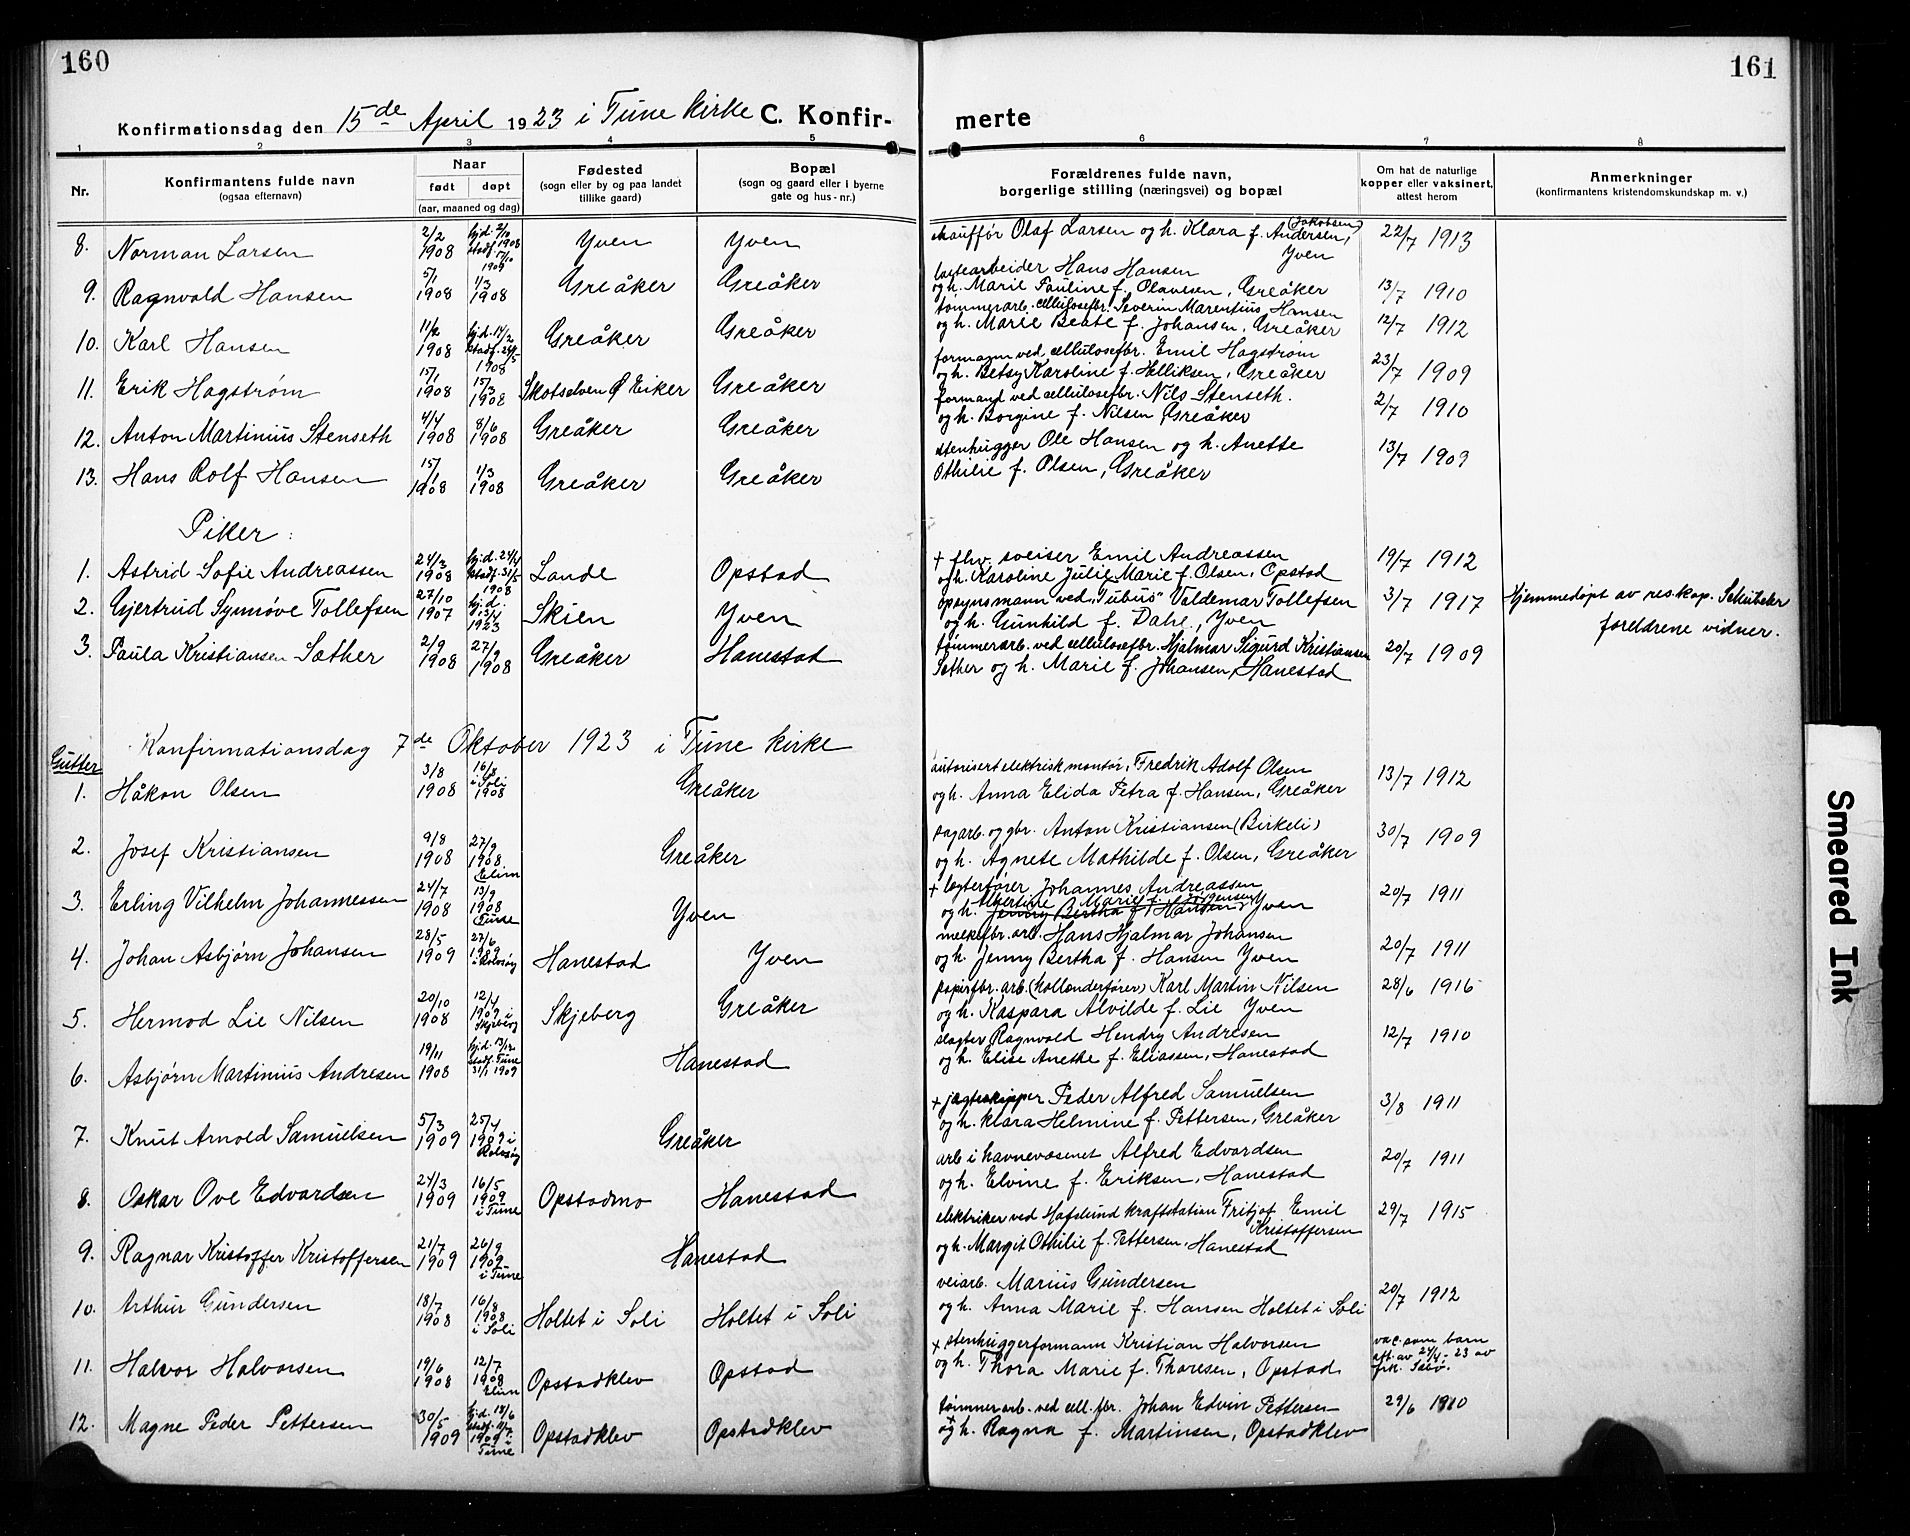 160
161
Konfirmationsdag den 15de April 1923 i Tune kirke C. Konfir- merte
1 2 3 4 5 6 7 8
Nr.
Konfirmantens fulde navn
(ogsaa efternavn)
Naar
født døpt
(aar, maaned og dag)
Fødested
(sogn eller by og paa landet
tillike gaard)
Bopæl
(sogn og gaard eller i byerne
gate og hus-nr.)
Forældrenes fulde navn,
borgerlige stilling (næringsvei) og bopæl
Om hat de naturlige
kopper eller vaksinert,
attest herom
Anmerkninger
(konfirmantens kristendomskundskap m. v.)
8. Norman Larsen 2/2 1908 hjd. 2/10 1908 stadf. 17/10 1909 Yven Yven chauffør Olaf Larsen og h. Klara f. Andersen, (Jakobsen) Yven 22/7 1913
9. Ragnvald Hansen 5/1 1908 1/3 1908 Greåker Greåker løsearbeider Hans Hansen
og h. Marie Pauline f. Olavesen, Greåker 13/7 1910
10. Karl Hansen 11/2 1908 hjd. 14/2 stadf. 24/5 1908 Greåker Greåker tømmerarb. cellulosefbr. Severin Marentius Hansen
og h. Marie Beate f. Johansen, Greåker 12/7 1912
11. Erik Hagstrøm 15/1 1908 15/3 1908 Skotselven Ø Eiker Greåker formann ved cellulosefbr. Emil Hagstrøm
og h. Betsy Karoline f. Helliksen, Greåker 23/7 1909
12. Anton Martinius Stenseth 4/4 1908 8/6 1908 Greåker Greåker formand ved cellulosefbr. Nils Stenseth.
og h. Borgine f. Nilsen Greåker 2/7 1910
13. Hans Rolf Hansen 15/1 1908 1/3 1908 Greåker Greåker stenhugger Ole Hansen og h. Anette
Othilie f. Olsen, Greåker 13/7 1909
Piker:
1. Astrid Sofie Andreassen 24/3 1908 hjd. 24/4 stadf. 31/5 1908 Lande Opstad + fhv. sveiser Emil Andreassen
og h. Karoline Julie Marie f. Olsen, Opstad 19/7 1912
2. Gjertrud Synnøve Tollefsen 27/10 1907 hjd. 13/4 1923 Skien Yven opsynsmann ved "Tubus" Valdemar Tollefsen
og h. Gunhild f. Dahl, Yven 3/7 1917 Hjemmedøpt av res. kap. Schübeler
foreldrene vidner.
3. Paula Kristiansen Sæther 2/9 1908 27/9 1908 Greåker Hanestad tømmerarb. ved cellulosefbr. Hjalmar Sigurd Kristiansen
Sæther og h. Marie f. Johansen, Hanestad 20/7 1909
Konfirmationsdag 7de Oktober 1923 i Tune kirke
Gutter
1. Håkon Olsen 3/8 1908 i Soli 1908 Greåker autorisert elektrisk montør, Fredrik Adolf Olsen
og h. Anna Elida Petra f. Hansen, Greåker 13/7 1912
2. Josef Kristiansen 9/8 1908 27/9 1908 Elim Greåker sagarb. og gbr. Anton Kristiansen (Birkeli)
og h. Agnete Mathilde f. Olsen, Greåker 30/7 1909
3. Erling Vilhelm Johannessen 24/7 1908 13/9 1908 Tune Yven + lægterfører Johannes Andreassen
og h. Albertine Marie f. Jørgensen Jenny Bertha f. Hansen, Yven 20/7 1911
4. Johan Asbjørn Johansen 28/5 1909 27/6 1909 i Rolvsøy Hanestad Yven melkefbr. arb. Hans Hjalmar Johansen
og h. Jenny Bertha f. Hansen Yven 20/7 1911
5. Hermod Lie Nilsen 20/10 1908 12/4 1909 i Skjeberg Skjeberg Greåker papirfbr. arb. (hollenderfører) Karl Martin Nilsen
og h. Kaspara Alvilde f. Lie Yven 28/6 1916
6. Asbjørn Martinius Andresen 19/11 1908 hjd. 13/12 stadf. Tune 31/1 1909 Hanestad slagter Ragnvald Hendry Andresen
og h. Elise Anethe f. Eliassen, Hanestad 12/7 1910
7. Knut Arnold Samuelsen 5/3 1909 25/4 1909 i Rolvsøy Greåker + jagteskipper Peder Alfred Samuelsen
og h. Klara Helmine f. Pettersen, Greåker 3/8 1911
8. Oskar Ove Edvardsen 24/3 1909 16/5 1909 i Tune Opstadmo Hanestad arb. i havnevæsenet Alfred Edvardsen
og h. Elvine f. Eriksen, Hanestad 20/7 1911
9. Ragnar Kristoffer Kristoffersen 21/7 1909 26/9 1909 i Tune Hanestad elektriker ved Hafslund kraftstation Fritjof Emil Kristoffersen
og h. Margit Othilie f. Pettersen, Hanestad 29/7 1915
10. Arthur Gundersen 18/7 1908 16/8 1908 i Soli Holtet i Soli Holtet i Soli veiarb. Marius Gundersen
og h. Anna Marie f. Hansen Holtet i Soli 20/7 1912
11. Halvor Halvorsen 19/6 1908 12/7 1908 Elim Opstadklev Opstad + stenhuggerformann Kristian Halvorsen
og h. Thora Marie f. Thoresen, Opstad vac. som barn
att. av 24/4-23 av
frk. Sebø.
12. Magne Peder Pettersen 30/5 1909 hjd. 13/6 stadf. 11/7 1909 i Tune Opstadklev Opstadklev tømmerarb. ved cell. fbr. Johan Edvin Pettersen
og h. Ragna f. Martinsen, Opstadklev 29/6 1910
Smeared Ink